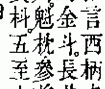 言西柄
金斗長
魁枕參
料五至